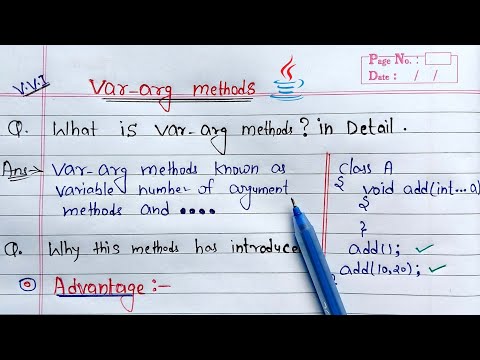 Page No.:
Date: / /
V.V.I
Var-arg methods
Q. What is var-arg methods? in Detail.
Ans:→ Var-arg methods known as
variable number of argument
methods and ....
class A
{ void add(int...a)
{
}
add();
add(10,20);
Q. Why this methods has introduce
Advantage:-